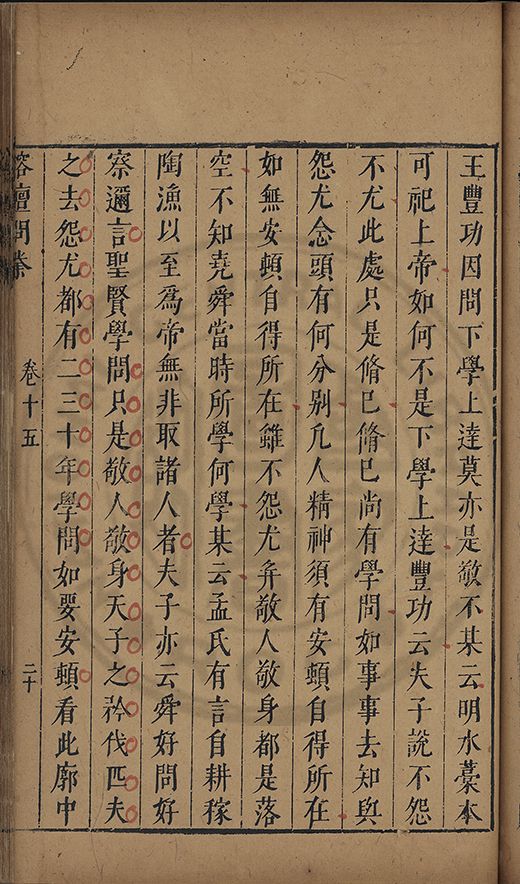 王豐功因問下學上達莫亦是敬不某云明水藁本
可祀上帝如何不是下學上達豐功云夫子說不怨
不尤此處只是脩已脩已尚有學問如事事去知與
怨尤念頭有何分别凡人精神須有安頓自得所在
如無安頓自得所在雖不怨尤弁敬人敬身都是落
空不知堯舜當時所學何學某云孟氏有言自耕稼
陶漁以至爲帝無非取諸人者夫子亦云舜好問好
察邇言聖賢學問只是敬人敬身天子之矜伐匹夫
之去怨尤都有二三十年學問如要安頓看此廓中
榕壇問業
卷十五
二十